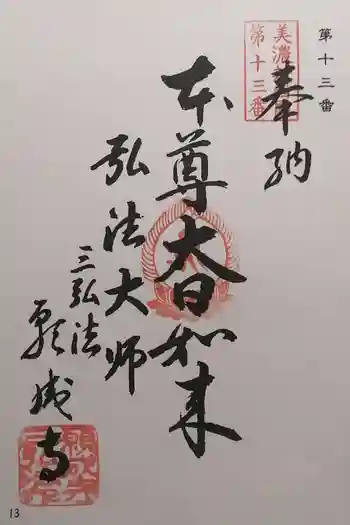 第十三番
美濃
第十三番
奉納
本尊大日如来
弘法大师
三弘法
願成寺
13